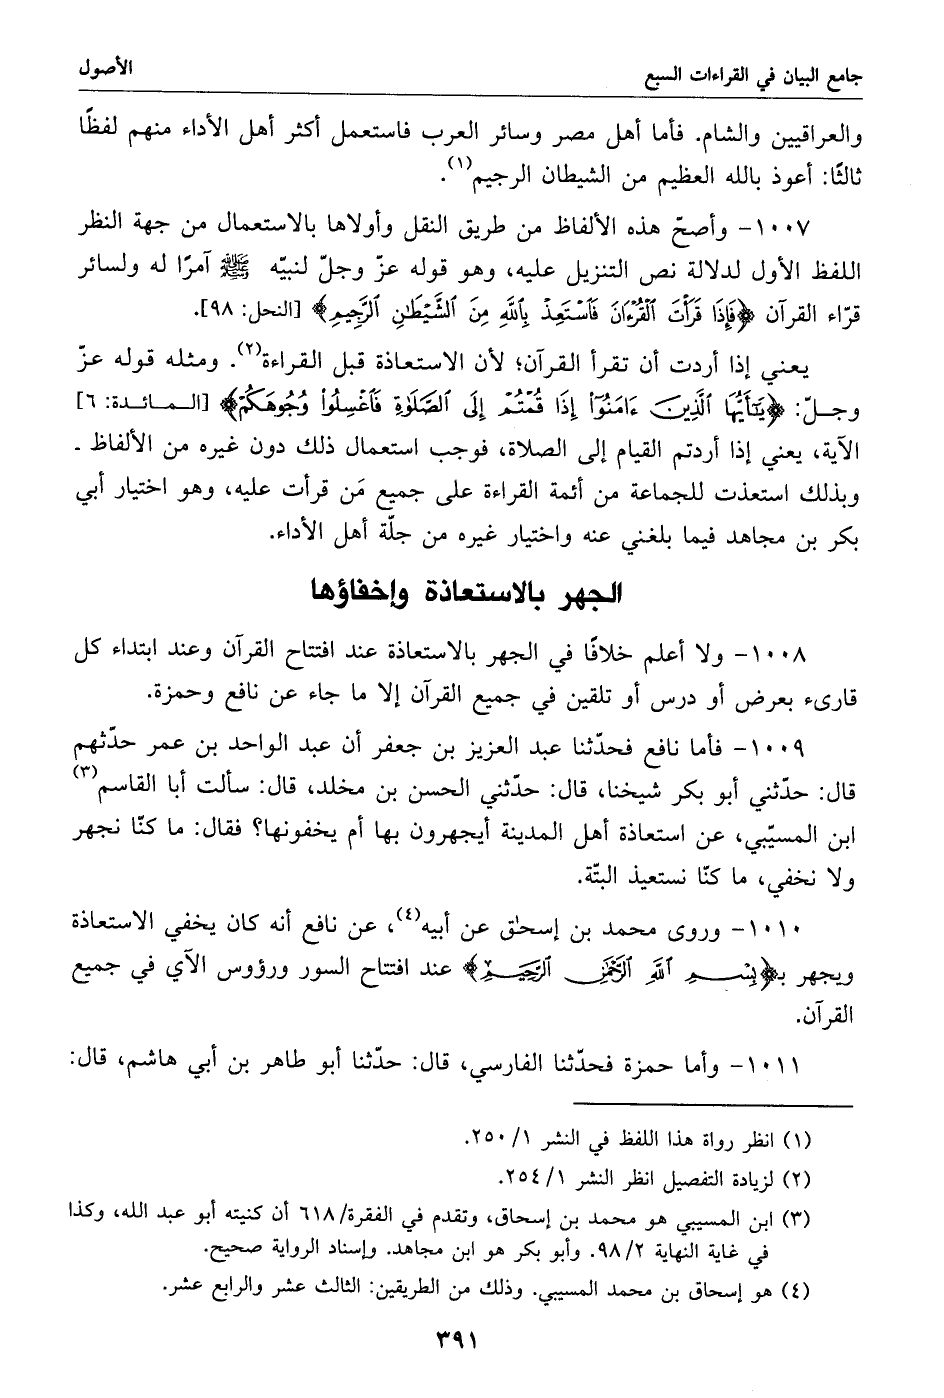 جامع البيان في القراءات السبع
الأصول
والعراقيين والشام. فأما أهل مصر وسائر العرب فاستعمل أكثر أهل الأداء منهم لفظًا
ثالثًا: أعوذ بالله العظيم من الشيطان الرجيم(١).
١٠٠٧- وأصحّ هذه الألفاظ من طريق النقل وأولاها بالاستعمال من جهة النظر
اللفظ الأول لدلالة نص التنزيل عليه، وهو قوله عزّ وجلّ لنبيّه ﷺ آمرًا له ولسائر
قرّاء القرآن ﴿فَإِذَا قَرَأۡتَ ٱلۡقُرۡءَانَ فَٱسۡتَعِذۡ بِٱللَّهِ مِنَ ٱلشَّيۡطَٰنِ ٱلرَّجِيمِ﴾ [النحل: ٩٨].
يعني إذا أردت أن تقرأ القرآن؛ لأن الاستعاذة قبل القراءة(٢). ومثله قوله عزّ
وجلّ: ﴿يَٰٓأَيُّهَا ٱلَّذِينَ ءَامَنُوٓاْ إِذَا قُمۡتُمۡ إِلَى ٱلصَّلَوٰةِ فَٱغۡسِلُواْ وُجُوهَكُمۡ﴾ [المائدة: ٦]
الآية، يعني إذا أردتم القيام إلى الصلاة، فوجب استعمال ذلك دون غيره من الألفاظ ـ
وبذلك استعذت للجماعة من أئمة القراءة على جميع مَن قرأت عليه، وهو اختيار أبي
بكر بن مجاهد فيما بلغني عنه واختيار غيره من جلّة أهل الأداء.
الجهر بالاستعاذة وإخفاؤها
١٠٠٨- ولا أعلم خلافًا في الجهر بالاستعاذة عند افتتاح القرآن وعند ابتداء كل
قارىء بعرض أو درس أو تلقين في جميع القرآن إلا ما جاء عن نافع وحمزة.
١٠٠٩- فأما نافع فحدّثنا عبد العزيز بن جعفر أن عبد الواحد بن عمر حدّثهم
قال: حدّثني أبو بكر شيخنا، قال: حدّثني الحسن بن مخلد، قال: سألت أبا القاسم(٣)
ابن المسيّبي، عن استعاذة أهل المدينة أيجهرون بها أم يخفونها؟ فقال: ما كنّا نجهر
ولا نخفي، ما كنّا نستعيذ البتّة.
١٠١٠- وروى محمد بن إسحٰق عن أبيه(٤)، عن نافع أنه كان يخفي الاستعاذة
ويجهر بـ﴿بِسۡمِ ٱللَّهِ ٱلرَّحۡمَٰنِ ٱلرَّحِيمِ﴾ عند افتتاح السور ورؤوس الآي في جميع
القرآن.
١٠١١- وأما حمزة فحدّثنا الفارسي، قال: حدّثنا أبو طاهر بن أبي هاشم، قال:
(١) انظر رواة هذا اللفظ في النشر ١/ ٢٥٠.
(٢) لزيادة التفصيل انظر النشر ١/ ٢٥٤.
(٣) ابن المسيبي هو محمد بن إسحاق، وتقدم في الفقرة/ ٦١٨ أن كنيته أبو عبد الله، وكذا
في غاية النهاية ٢/ ٩٨. وأبو بكر هو ابن مجاهد. وإسناد الرواية صحيح.
(٤) هو إسحاق بن محمد المسيبي. وذلك من الطريقين: الثالث عشر والرابع عشر.
٣٩١